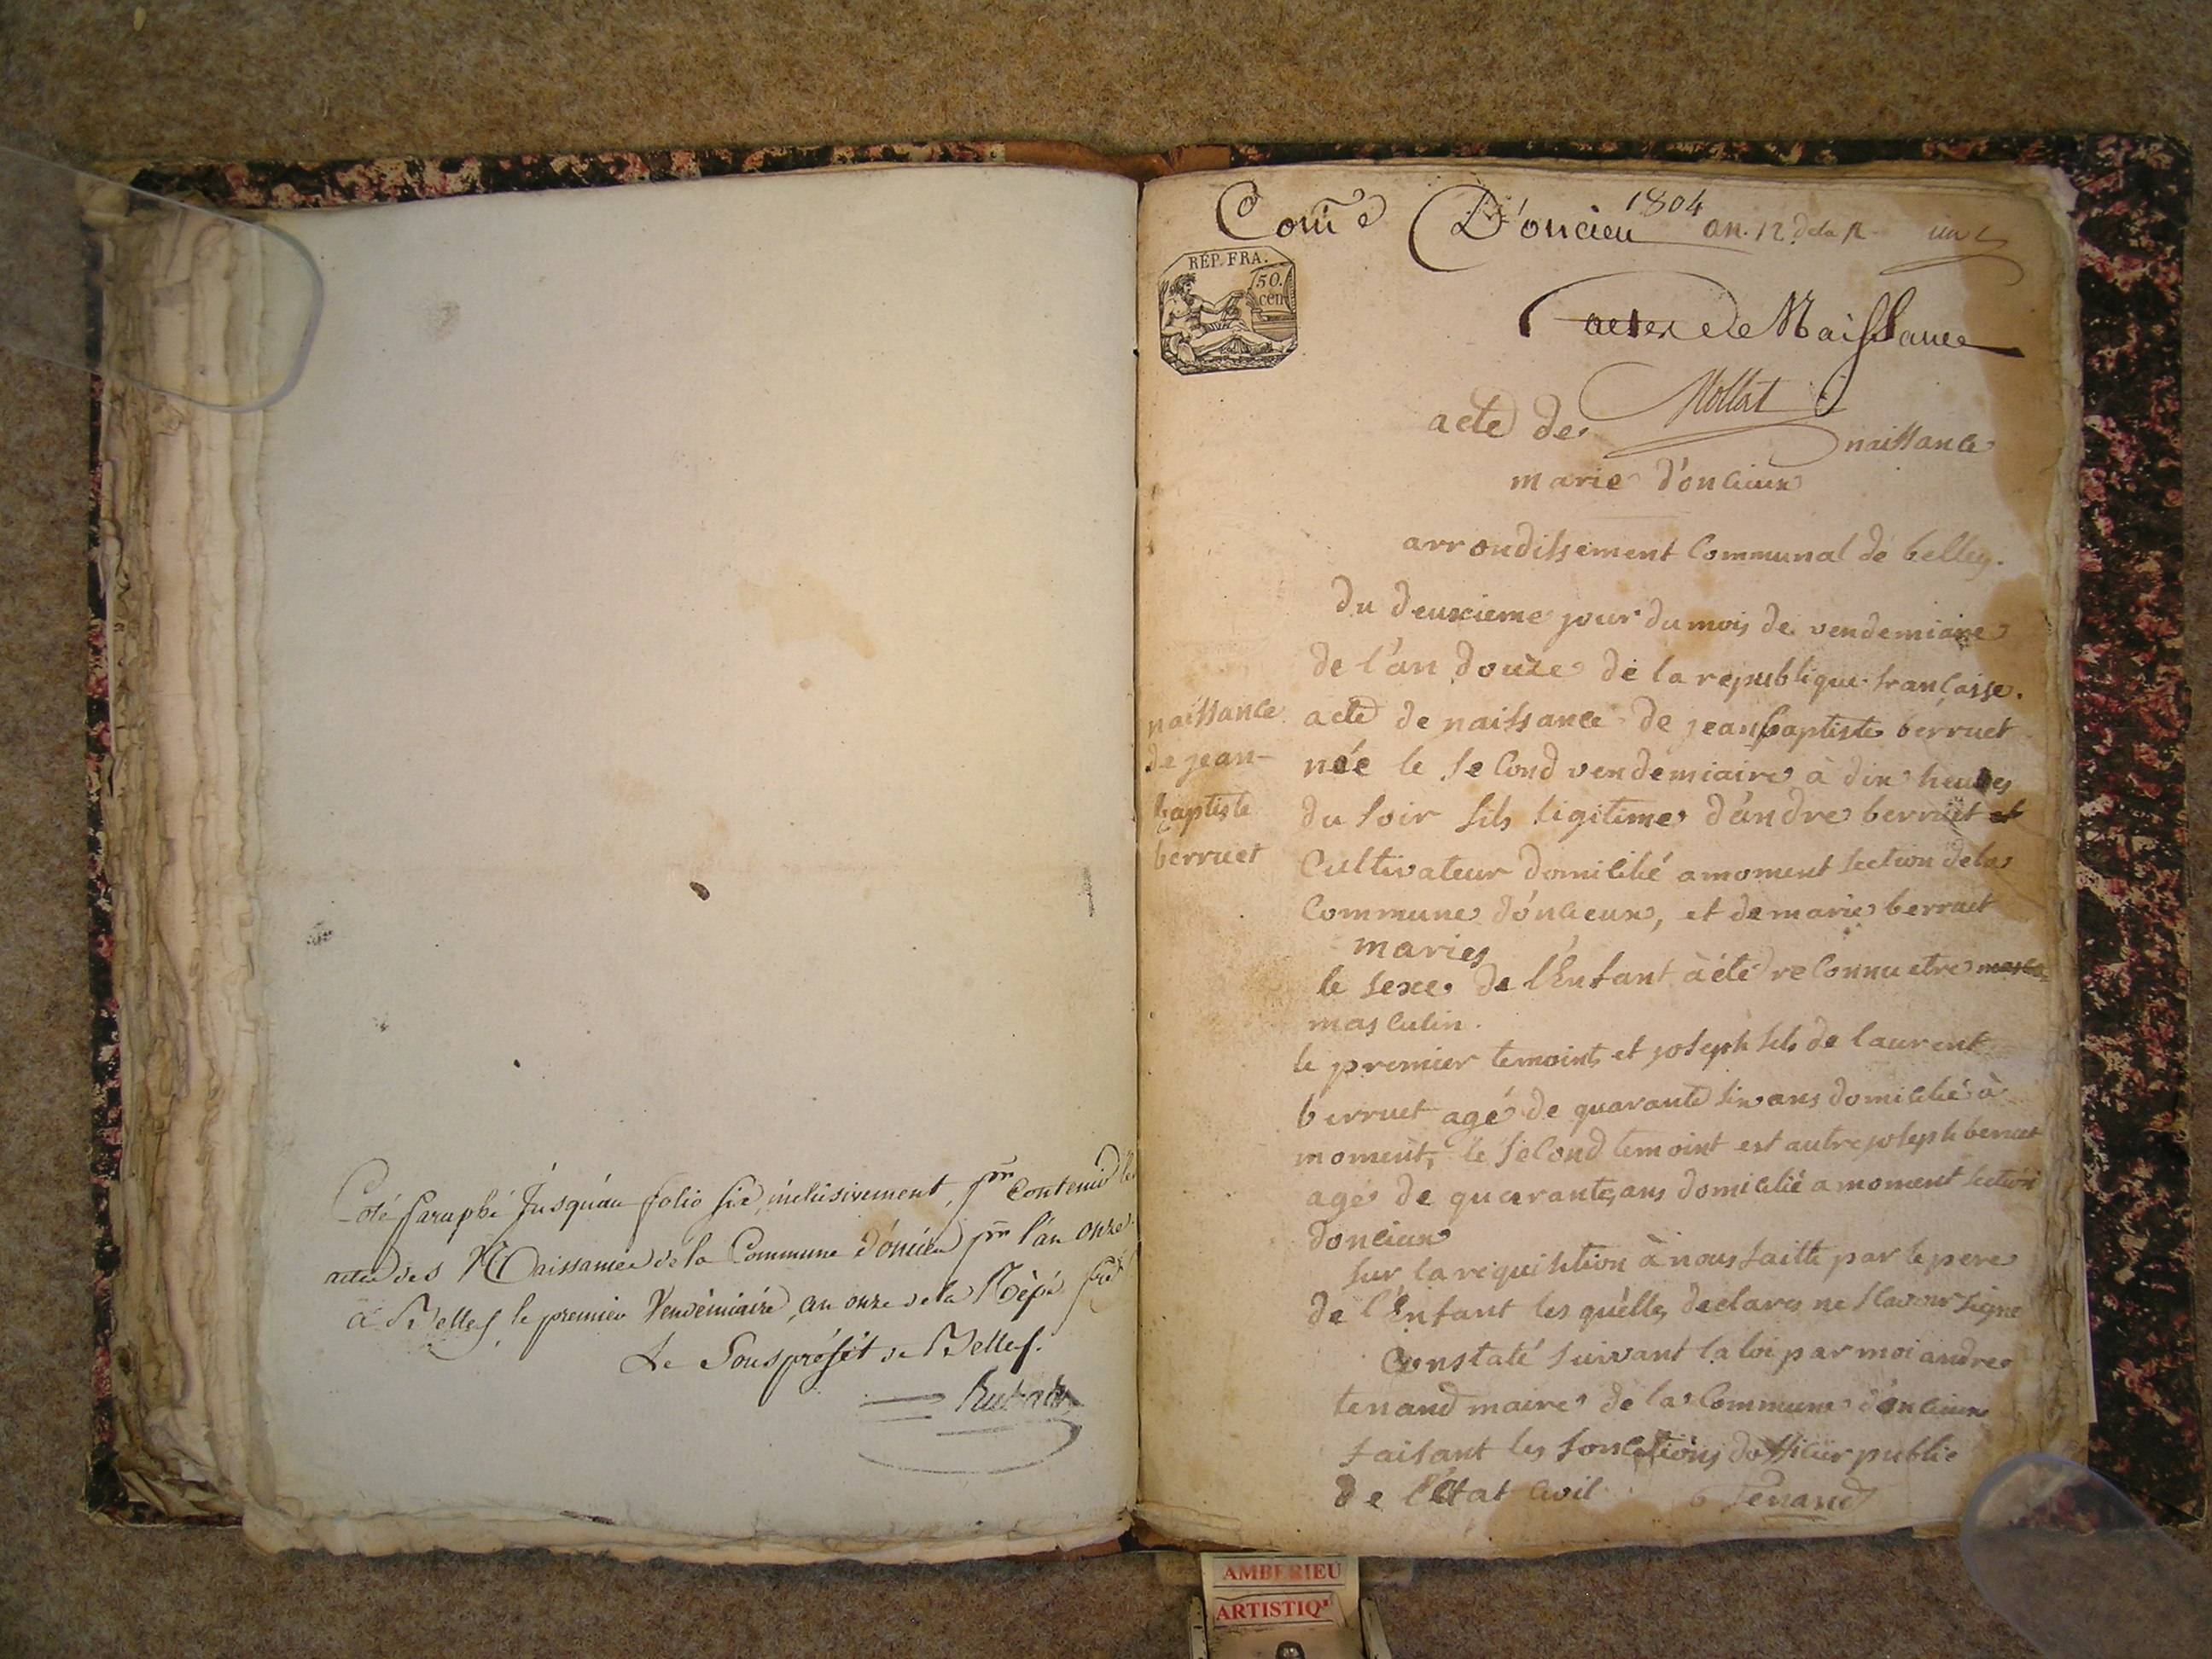 Coté Paraphé Jusqu'au folio six, inclusivement, pr Contenir les
actes des Naissances de la Commune d'oncieu pr l'an onze.
à Belley le premier Vendémiaire, an onze de la Rép.
Le Sous préfét de Belley.
Come D'oncieu 1804 an. 12 de la R un
RÉP. FRA.
50.
cen
actes de Naissance
acte de naissance
marie d'oncieux
arrondissement Communal de belley.
du deuxieme jour du mois de vendemiaire
de l'an douze de la republique francaisse.
naissance
de jean-
baptiste
berruet
acte de naissance de jean baptiste berruet
née le second vendemiaire à dix heures
du soir fils ligitime d'andre berruet et
Cultivateur domicilié a moment section de la
Commune d'oncieux, et de marie berruet
maries
le sexe de l'Enfant à été reconnu etre mascu-
masculin.
le premier temoint et joseph fils de laurent
berruet agé de quarante six ans domicilié à
moment, le second temoint est autre joseph berruet
agé de quarante, ans domicilié a moment section
doncieux
sur la requisition à nous faitte par le pere
de l'Enfant les quelles declares ne scavoir signe
Constaté suivant la loi par moi andre
tenand maire de la Commune d'oncieux
faisant les fonctions d'officier public
de l'état civil tenand
AMBERIEU
ARTISTIQ